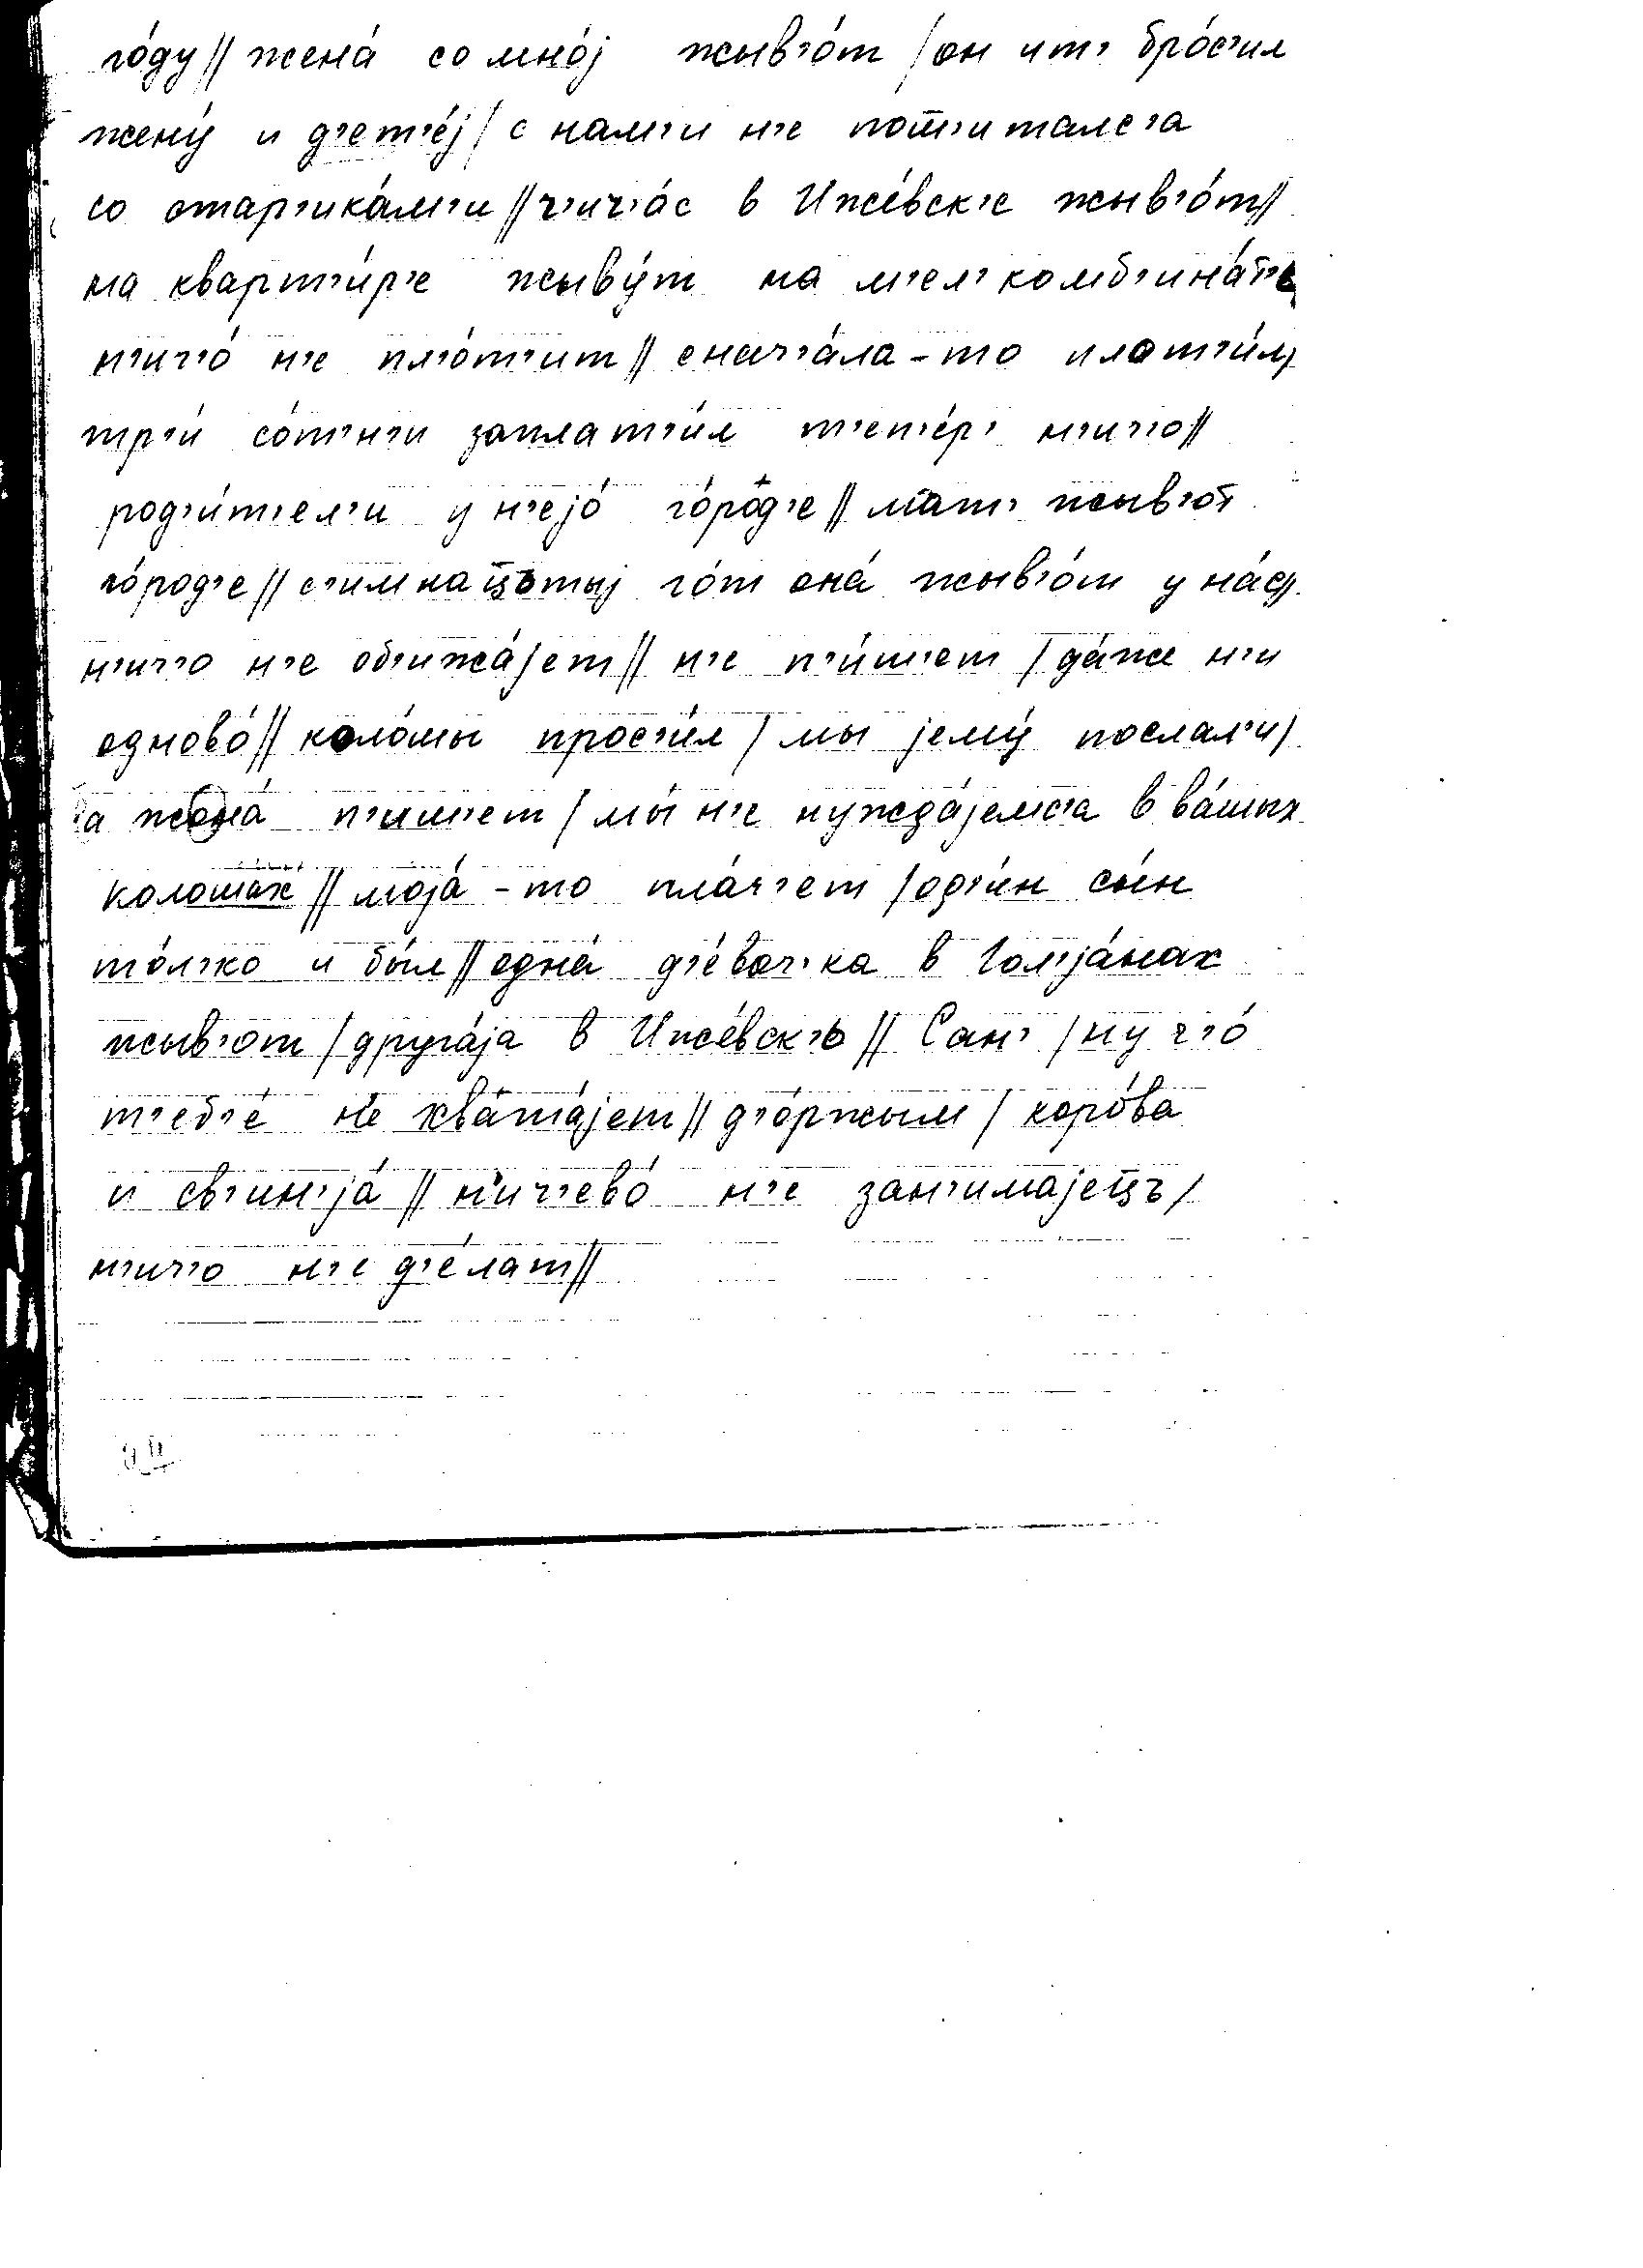 го́ду // жена́ со мно́j жыв'о́т / он ит' бро́с'ил
жену́ и д'ет'е́j / с нам'и н'е пот'италс'а
со стар'ика́м'и // ч'ич'а́с в Иже́вск'е жыв'о́т //
на кварт'и́р'е жыву́т на м'ел'комб'ина́т'е
н'ич'о́ н'е пл'о́т'ит // снач'а́ла-то плат'и́л /
тр'и́ со́т'н'и заплат'и́л т'еп'е́р' н'ич'о //
род'и́т'ел'и у н'еjо́ го́род'е // мат' жыв'от
го́род'е // с'имнацътыj го́т она́ жыв'о́т у на́с //
н'ич'о н'е об'ижа́jет // н'е п'и́шет / да́же н'и
одново́ // коло́шы прос'и́л / мы jему́ послал'и /
а жена́ п'ишет / мы́ н'е нужда́jемс'а в ва́шых
колошах // моjа́-то пла́ч'ет / од'и́н сы́н
то́л'ко и бы́л // одна́ д'е́воч'ка в Гол'jа́нах
жыв'от / друга́jа в Иже́вск'ь // Сан' / ну ч'о́
т'еб'е́ не хвата́jет // д'о́ржым / коро́ва
и св'ин'jа́ // н'ич'ево́ н'е зан'имаjецъ /
н'ич'о н'е д'е́лат //